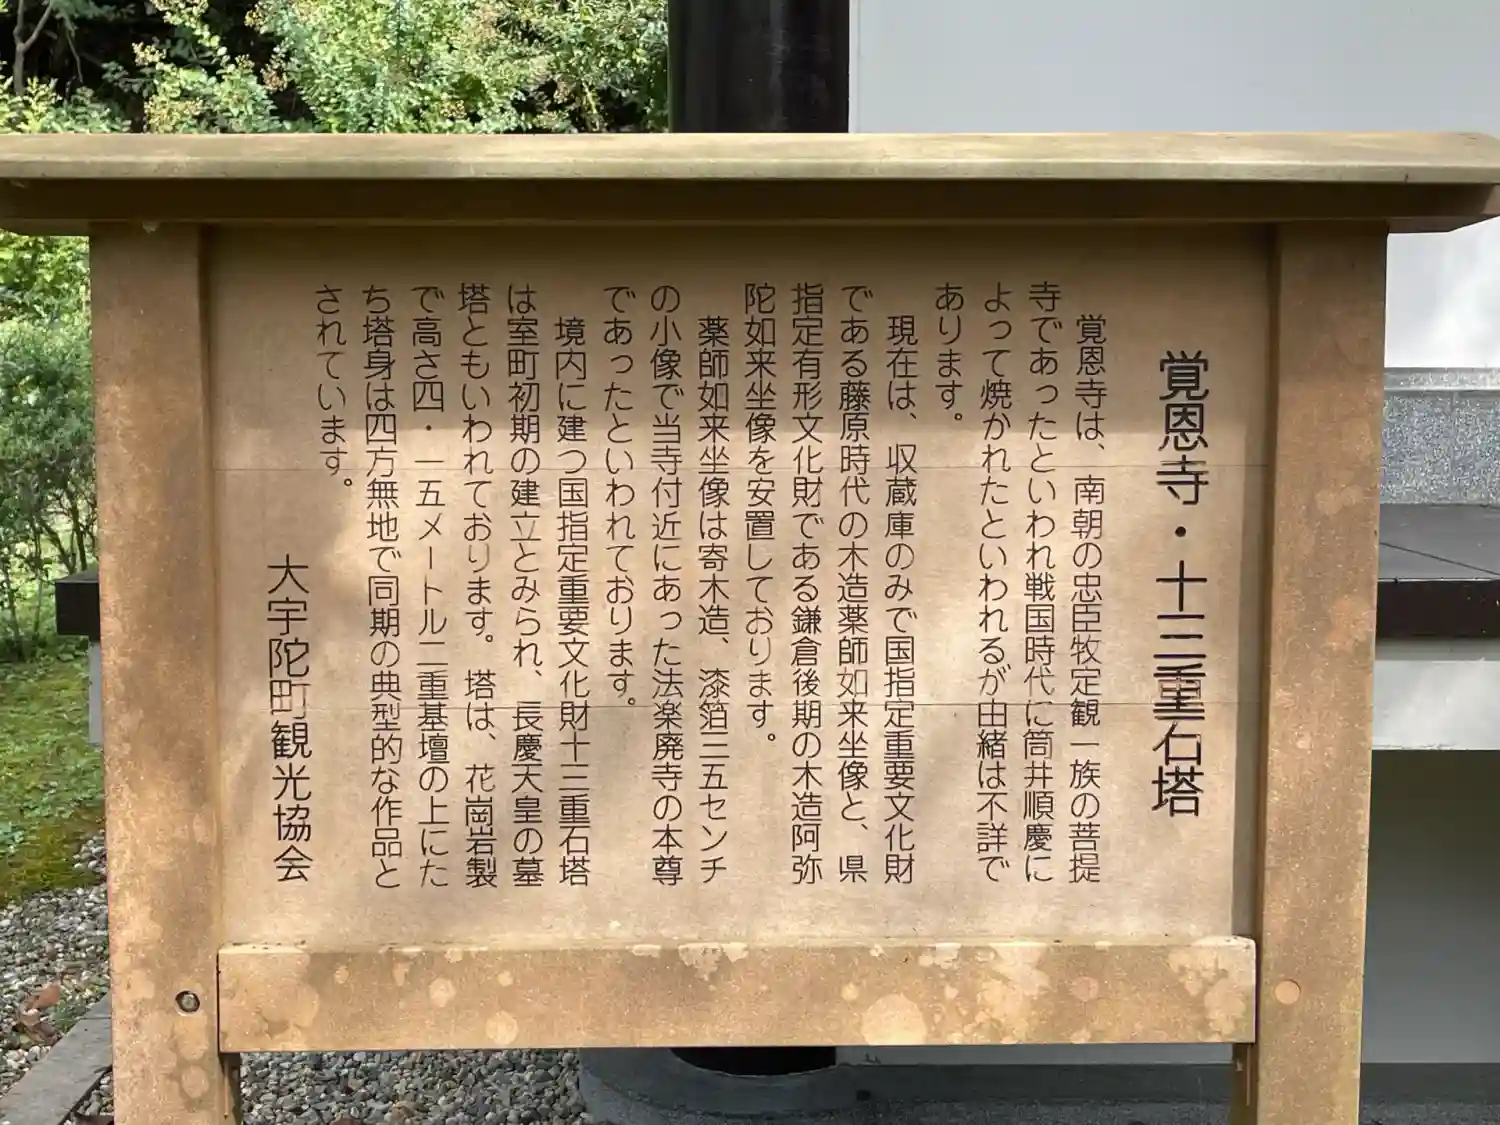 覚恩寺・十三重石塔
覚恩寺は、南朝の忠臣牧定観一族の菩提
寺であったといわれ戦国時代に筒井順慶に
よって焼かれたといわれるが由緒は不詳で
あります。
現在は、収蔵庫のみで国指定重要文化財
である藤原時代の木造薬師如来坐像と、県
指定有形文化財である鎌倉後期の木造阿弥
陀如来坐像を安置しております。
薬師如来坐像は寄木造、漆箔三五センチ
の小像で当寺付近にあった法楽廃寺の本尊
であったといわれております。
境内に建つ国指定重要文化財十三重石塔
は室町初期の建立とみられ、長慶天皇の墓
塔ともいわれております。塔は、花崗岩製
で高さ四・一五メートル二重基壇の上にた
ち塔身は四方無地で同期の典型的な作品と
されています。
大宇陀町観光協会